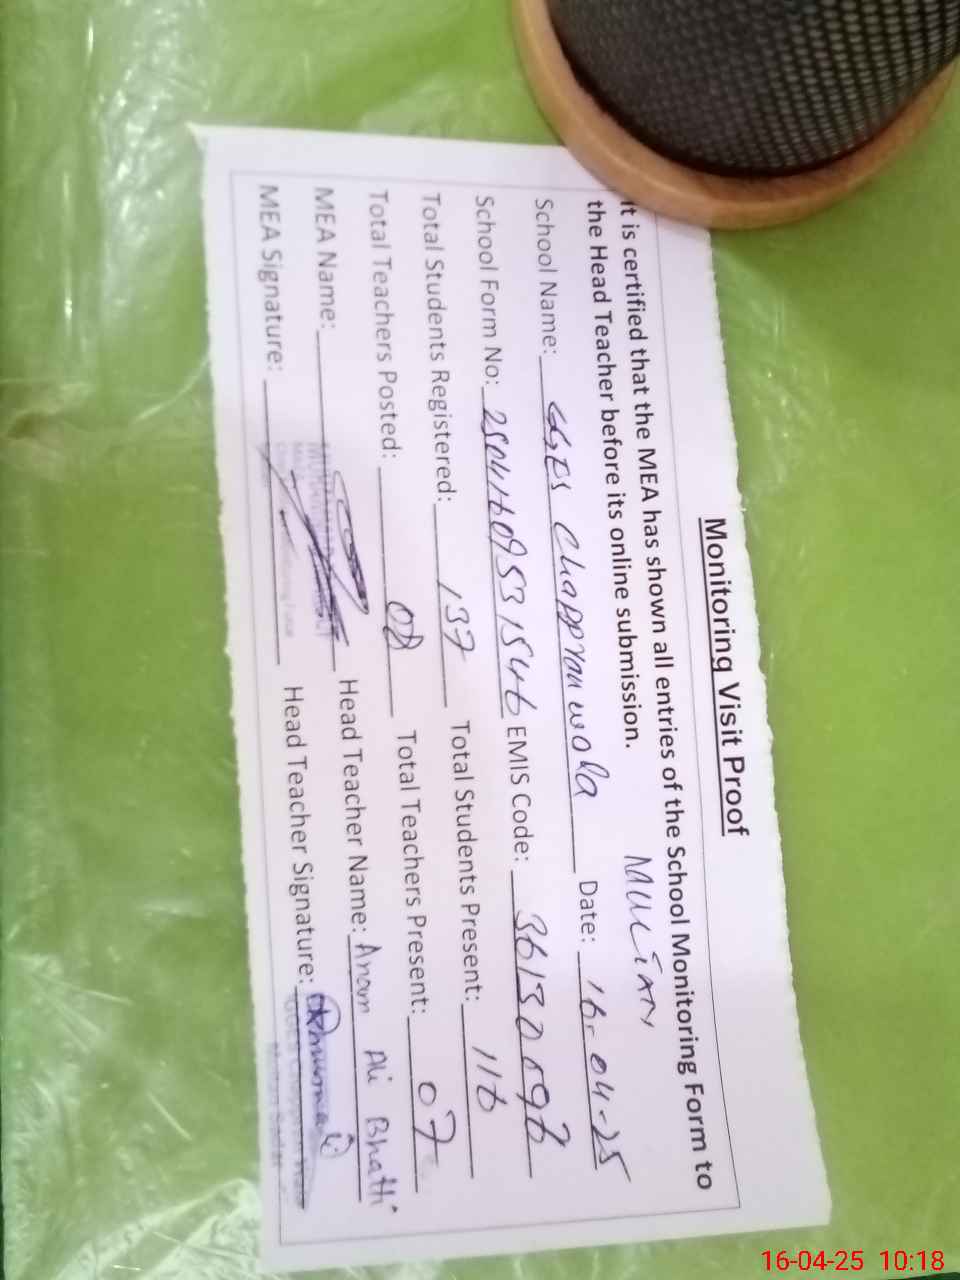 Monitoring Visit Proof
It is certified that the MEA has shown all entries of the School Monitoring Form to
the Head Teacher before its online submission.
School Name: GGES Chappran wala Date: 16-04-25
School Form No: EMIS Code:
Total Students Registered: 137 Total Students Present: 116
Total Teachers Posted: 08 Total Teachers Present: 07
MEA Name: Head Teacher Name: Anam Ali Bhatti
MEA Signature: Head Teacher Signature:
16-04-25 10:18